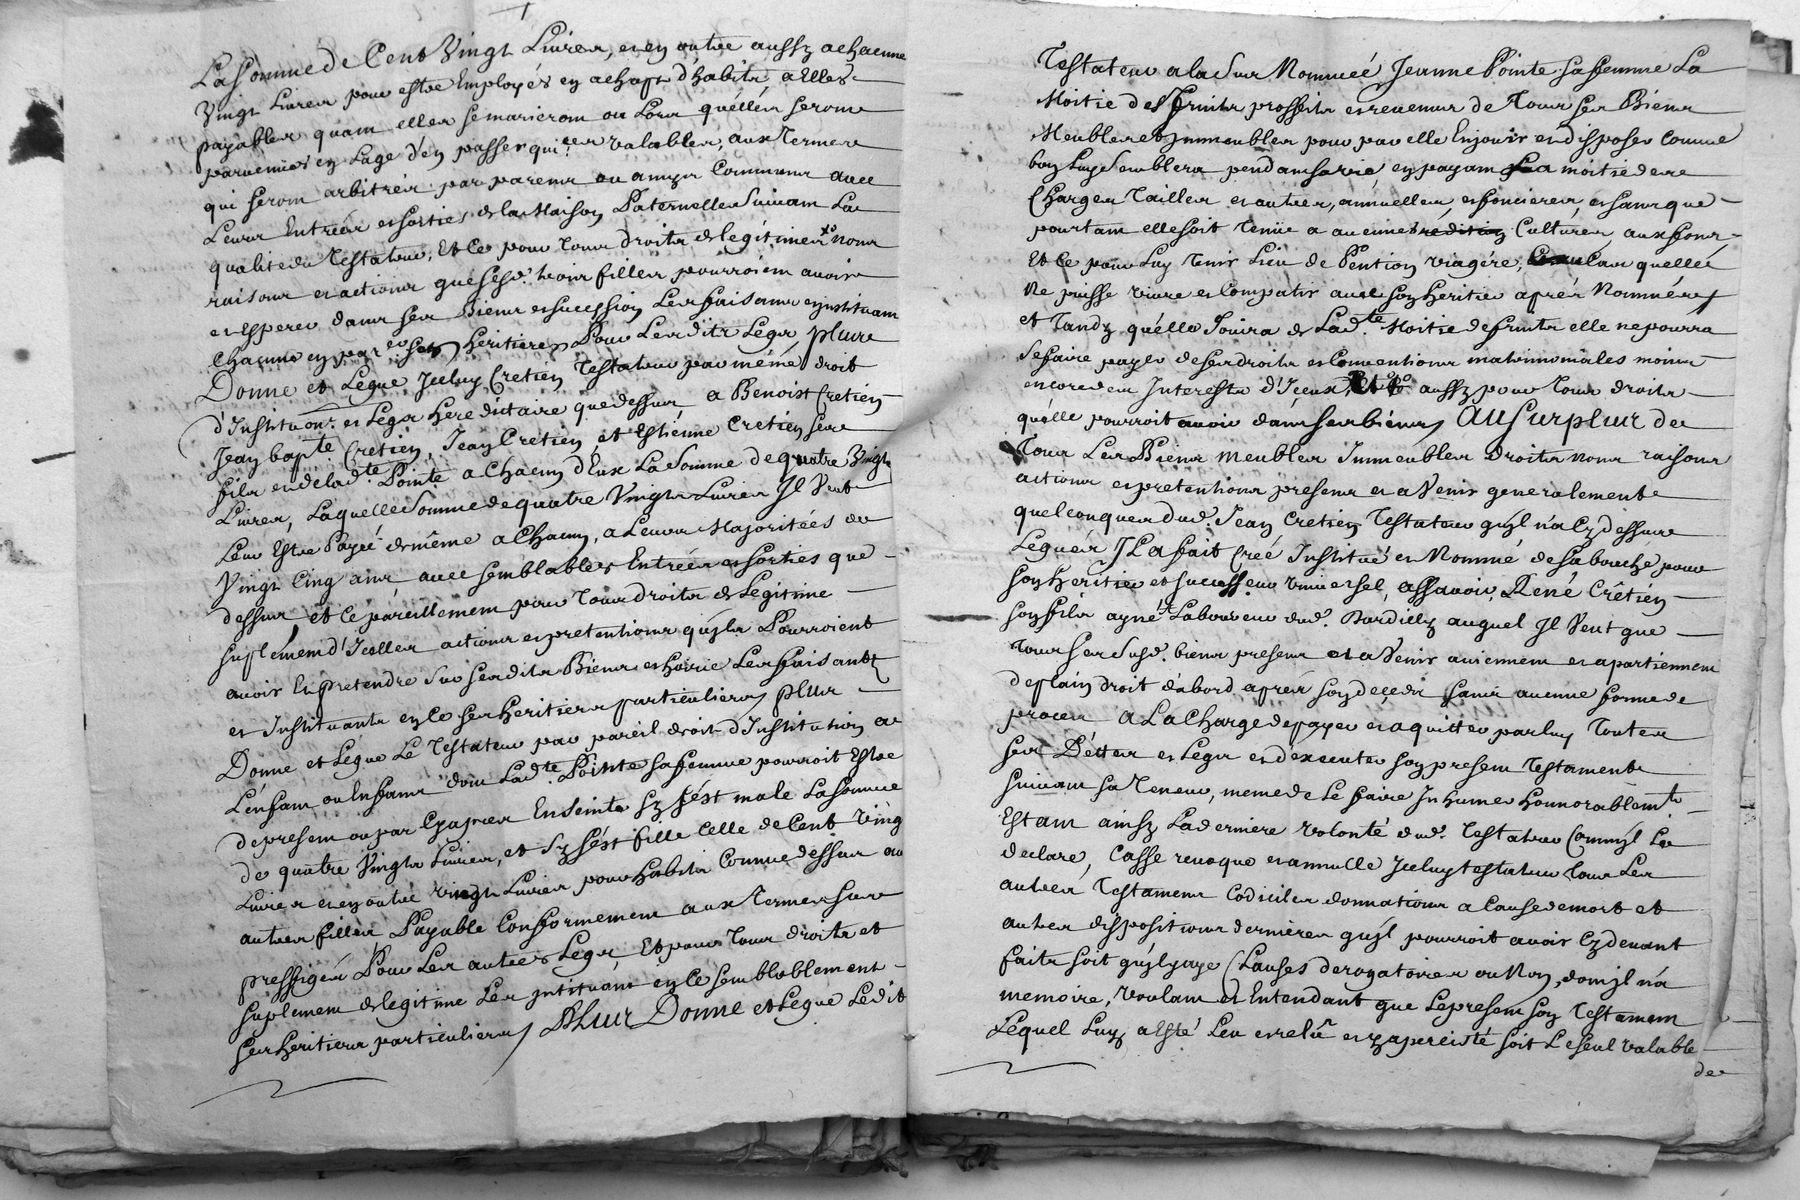 La Somme de Cent Vingt Livres, et en outre aussy a chacune
Vingt Livres pour estre Employés en achapt d'habits a Elles
payables quant elles se marieront ou Lors quélles seront
parvenues en Lage d'en passer quit.ces valables, aux Termes
qui seront arbitrés par parents ou amys Communs avec
Leurs Entrées et sorties de la Maison Paternelle Suivant La
qualité du Testateur, Et Ce pour Tous droits de legitime noms
raisons et actions que sesd. trois filles pourroient avoir
et Esperer dans ses Biens et sucession Les faisant et instituant
Chacune en ses heritieres Pour Lesdits Legs, plus
Donne et Legue Iceluy Cretien Testateur par même droit
d'Institu.on et Legs hereditaire que dessus a Benoist Cretien
Jean bapte Cretien, Jean Cretien et Estienne Cretien ses
fils et de lad.te Pointe a Chacun d'Eux La Somme de quatre Vingts
Livres, Laquelle Somme de quatre Vingts Livres Il Veut
Leur Estre Payé de même a Chacun, a Leurs Majoritées de
Vingt Cinq ans avec semblables Entrées et sorties que
dessus, et ce pareillement pour Tous droits de Légitime
suplément d'Icelles actions et pretentions quíls Pourroient
avoir Et pretendre Sur sesdits Biens et hoirie Les faisants
et Instituants en Ce ses heritiers particuliers, plus
Donne et Légue Le Testateur par pareil droit d'Institution a
L'énfant ou Enfans dont Lad.te Pointe sa femme pourroit Estre
de present ou par Cyapres Enseinte sy sést male La somme
de quatre Vingts Livres, et Sy sést fille Celle de Cent Ving
Livres et en outre vingt Livres pour habits Comme dessus au
autres filles Payable Conformement aux Termes sus
preffigés Pour Les autres Legs, Et pour Tous droits et
suplement de legitime Les instituant en Ce semblablement
ses heritiers particuliers, Plus Donne et Legue Ledit
Testateur a la Sus Nommeé Jeanne Pointe sa femme La
Moitie des fruits proffits et revenus de Tous ses Biens
Meubles et Immeubles pour par elle En jouir et disposer Comme
bon Luy Semblera pendant sa vie en payant La moitié des
Charges Tailles et autres, annuelles, et foncieres, et sans que
pourtant elle soit Tenüe a aucunes Cultures, aux fonds
Et Ce pour Luy Tenir Lieu de Pention viagére, Cas quelle
Ne puisse vivre et Compatir avec son heritier aprés Nommé,
et Tandis quélle Jouira de Lad.te Moitié de fruits elle ne pourra
se faire payer de ses droits et Conventions matrimoniales moins
encore des Interests d'Iceux, aussy pour Tous droits
quélle pourroit avoir dans ses biens, Au Surplus de
Tous Les Biens meubles Immeubles droits noms raisons
actions et pretentions presents et a Venir generalement
quelconques dud. Jean Cretien Testateur quil n'a Cy dessus
Legués Il a fait Creé Institué et Nommé de sa bouche pour
son heritier et successeur universel, assavoir, René Crétien
son fils ayné Laboureur dud. Dardilly auquel Il Veut que
Tous ses susd. biens presents et a Venir aviennent et apartiennent
de plain droit d'abord aprés son deçeds sans aucune forme de
proces a La Charge de payer et aquitter par luy Toutes
ses Déttes et Legs et d'executer son present Testament
suivant sa Teneur, meme de Le faire Inhumer honnorablem.t
Estant ainsy La derniere volonté dud. Testateur Comm'il La
declaré, Casse revoque et annulle Iceluy testateur Tous Les
autres Testaments Codiciles donnations a Cause de mort et
autres dispositions dernieres qu'il pourroit avoir Cy devant
faits soit qu'il y aye Clauses derogatoires ou Non, dont il n'a
memoire, Voulant et Entendant que Le present son Testament
Lequel Luy a Esté Leu et relû et y a percisté soit Le seul valable
de